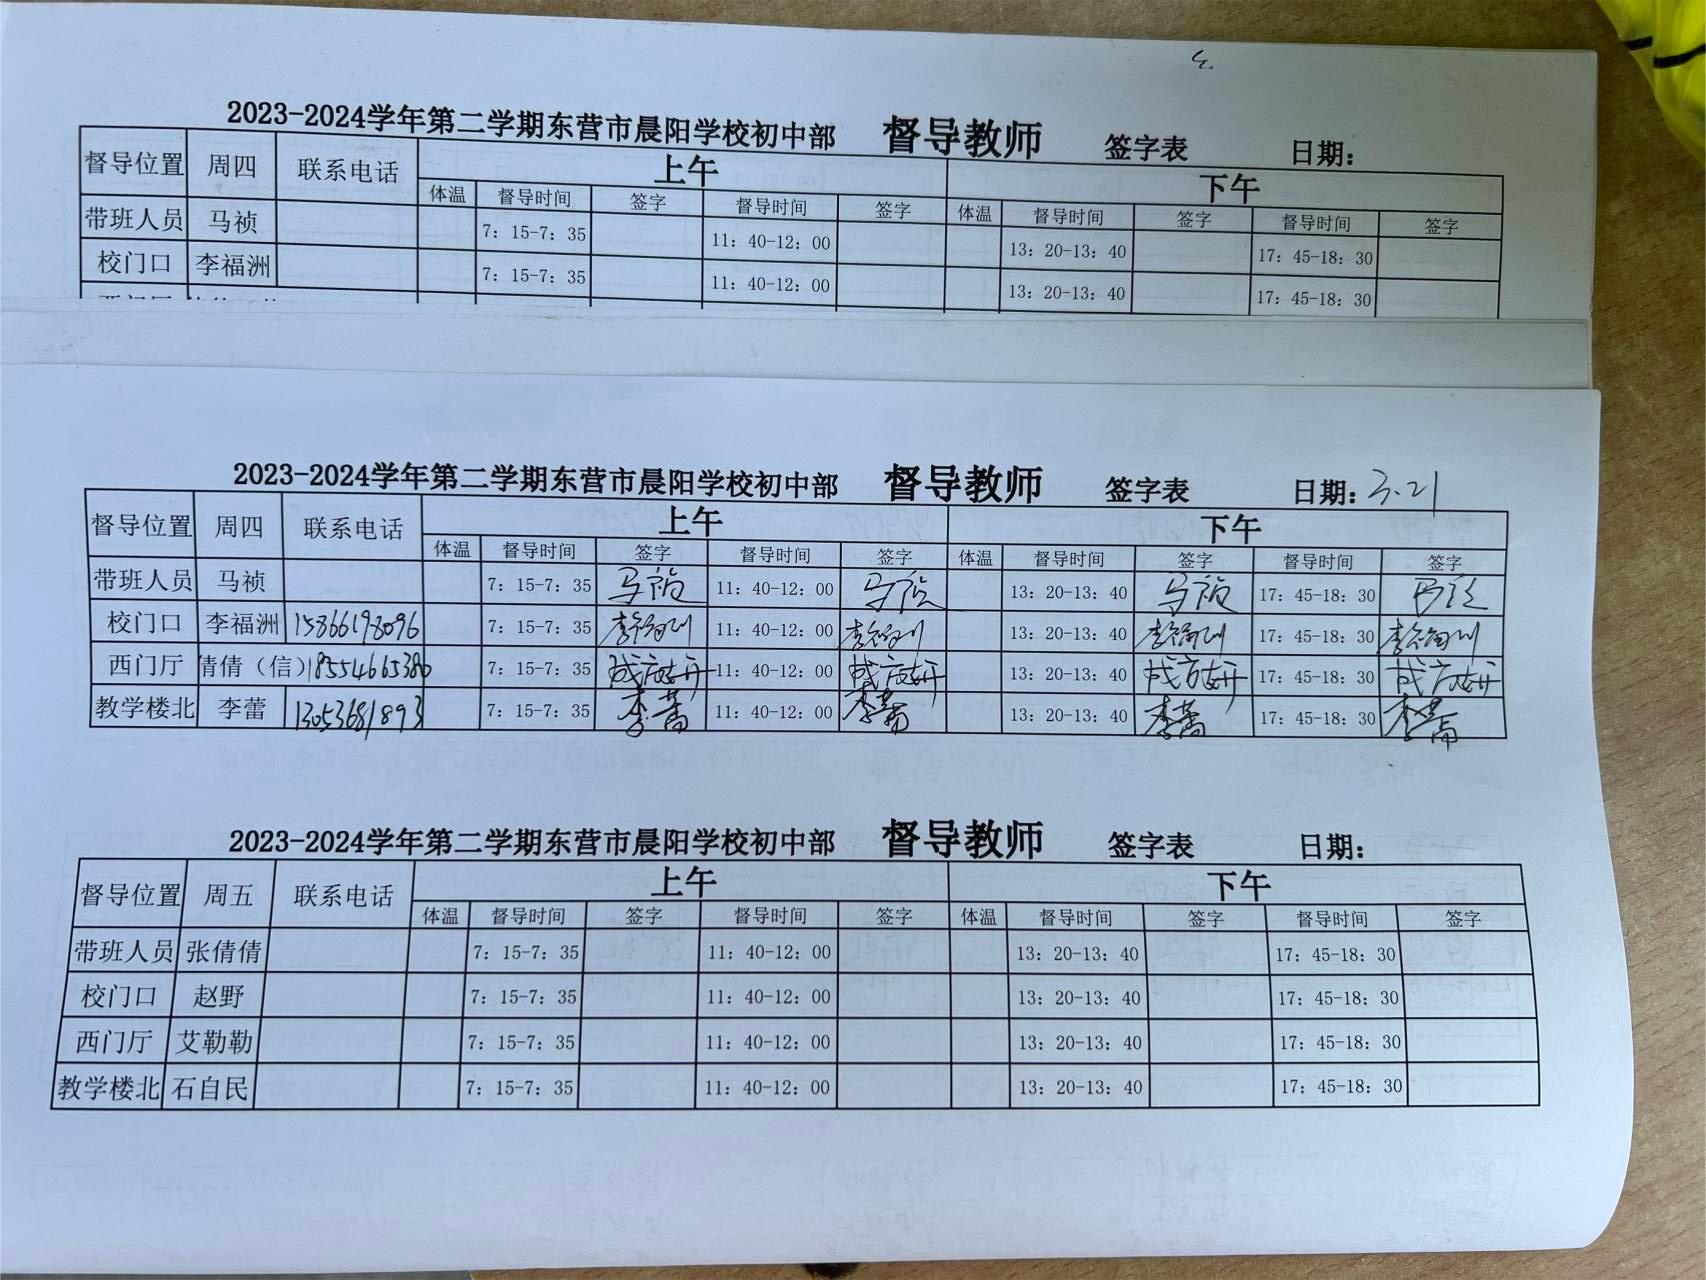 2023-2024学年第二学期东营市晨阳学校初中部 督导教师 签字表 日期：
督导位置 周四 联系电话 上午 下午
体温 督导时间 签字 督导时间 签字 体温 督导时间 签字 督导时间 签字
带班人员 马祯 7：15-7：35 11：40-12：00 13：20-13：40 17：45-18：30
校门口 李福洲 7：15-7：35 11：40-12：00 13：20-13：40 17：45-18：30
2023-2024学年第二学期东营市晨阳学校初中部 督导教师 签字表 日期：3.21
督导位置 周四 联系电话 上午 下午
体温 督导时间 签字 督导时间 签字 体温 督导时间 签字 督导时间 签字
带班人员 马祯 7：15-7：35 马祯 11：40-12：00 马祯 13：20-13：40 马祯 17：45-18：30 马祯
校门口 李福洲 15866198096 7：15-7：35 李福洲 11：40-12：00 李福洲 13：20-13：40 李福洲 17：45-18：30 李福洲
西门厅 倩倩（信） 18554665380 7：15-7：35 11：40-12：00 13：20-13：40 17：45-18：30
教学楼北 李蕾 13053681893 7：15-7：35 李蕾 11：40-12：00 李蕾 13：20-13：40 李蕾 17：45-18：30 李蕾
2023-2024学年第二学期东营市晨阳学校初中部 督导教师 签字表 日期：
督导位置 周五 联系电话 上午 下午
体温 督导时间 签字 督导时间 签字 体温 督导时间 签字 督导时间 签字
带班人员 张倩倩 7：15-7：35 11：40-12：00 13：20-13：40 17：45-18：30
校门口 赵野 7：15-7：35 11：40-12：00 13：20-13：40 17：45-18：30
西门厅 艾勒勒 7：15-7：35 11：40-12：00 13：20-13：40 17：45-18：30
教学楼北 石自民 7：15-7：35 11：40-12：00 13：20-13：40 17：45-18：30